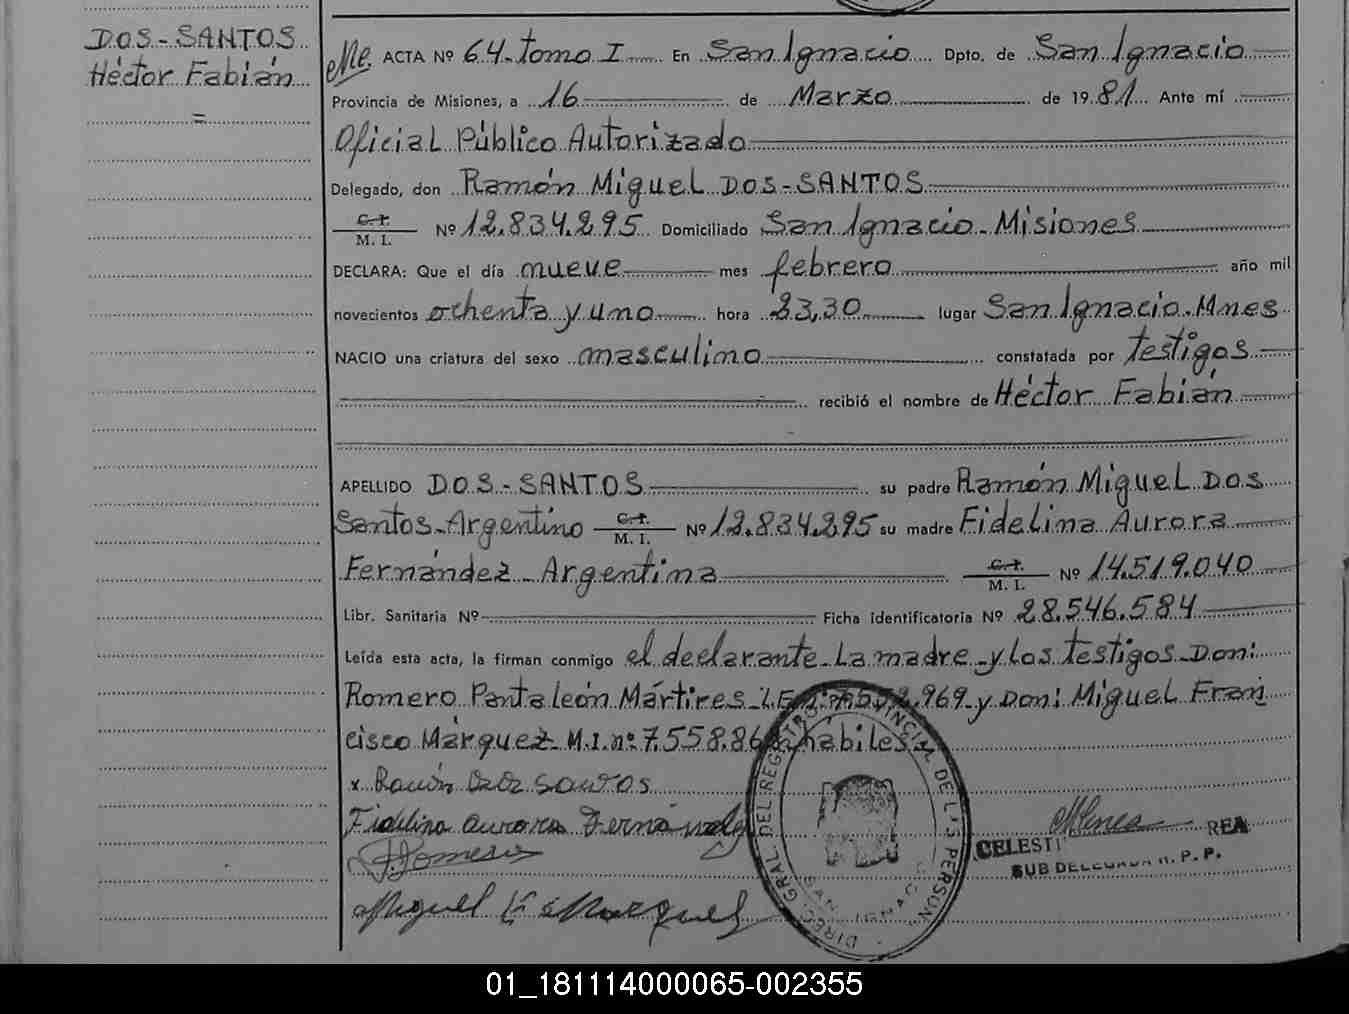 DOS-SANTOS
Héctor Fabián
=
ACTA Nº 64. tomo I En San Ignacio Dpto. de San Ignacio
Provincia de Misiones, a 16 de Marzo de 1981 Ante mí
Oficial Público Autorizado
Delegado, don Ramón Miguel DOS-SANTOS
C. I.
M. I. Nº 12.834.295 Domiciliado San Ignacio - Misiones
DECLARA: Que el día nueve mes febrero año mil
novecientos ochenta y uno hora 23,30 lugar San Ignacio. Mnes
NACIO una criatura del sexo masculino constatada por testigos
recibió el nombre de Héctor Fabián
APELLIDO DOS-SANTOS su padre Ramón Miguel Dos
Santos - Argentino C. I. M. I. Nº 12.834.295 su madre Fidelina Aurora
Fernández - Argentina C. I. M. I. Nº 14.519.040
Libr. Sanitaria Nº Ficha identificatoria Nº 28.546.584
Leída esta acta, la firman conmigo el declarante - La madre - y los testigos - Don:
Romero Pantaleón Mártires - 969 - y Don: Miguel Fran
cisco Márquez - M.I. nº 7.558.86 hábiles
x Ramón Dos Santos
Fidelina Aurora Fernández
Romero
Miguel F. Marquez
DIREC. GRAL. DEL REGISTRO PROVINCIAL DE L'S PERSON
SAN IGNACIO
CELESTI REA
SUB DELEGADA R. P. P.
01_181114000065-002355